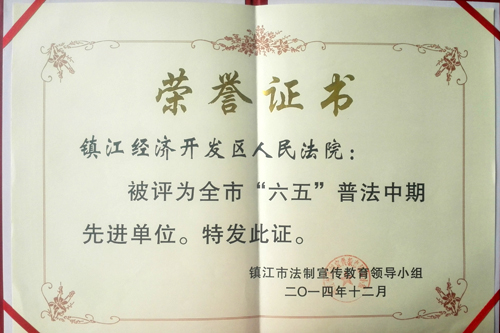 荣誉证书
镇江经济开发区人民法院：
被评为全市“六五”普法中期
先进单位。特发此证。
镇江市法制宣传教育领导小组
二〇一四年十二月